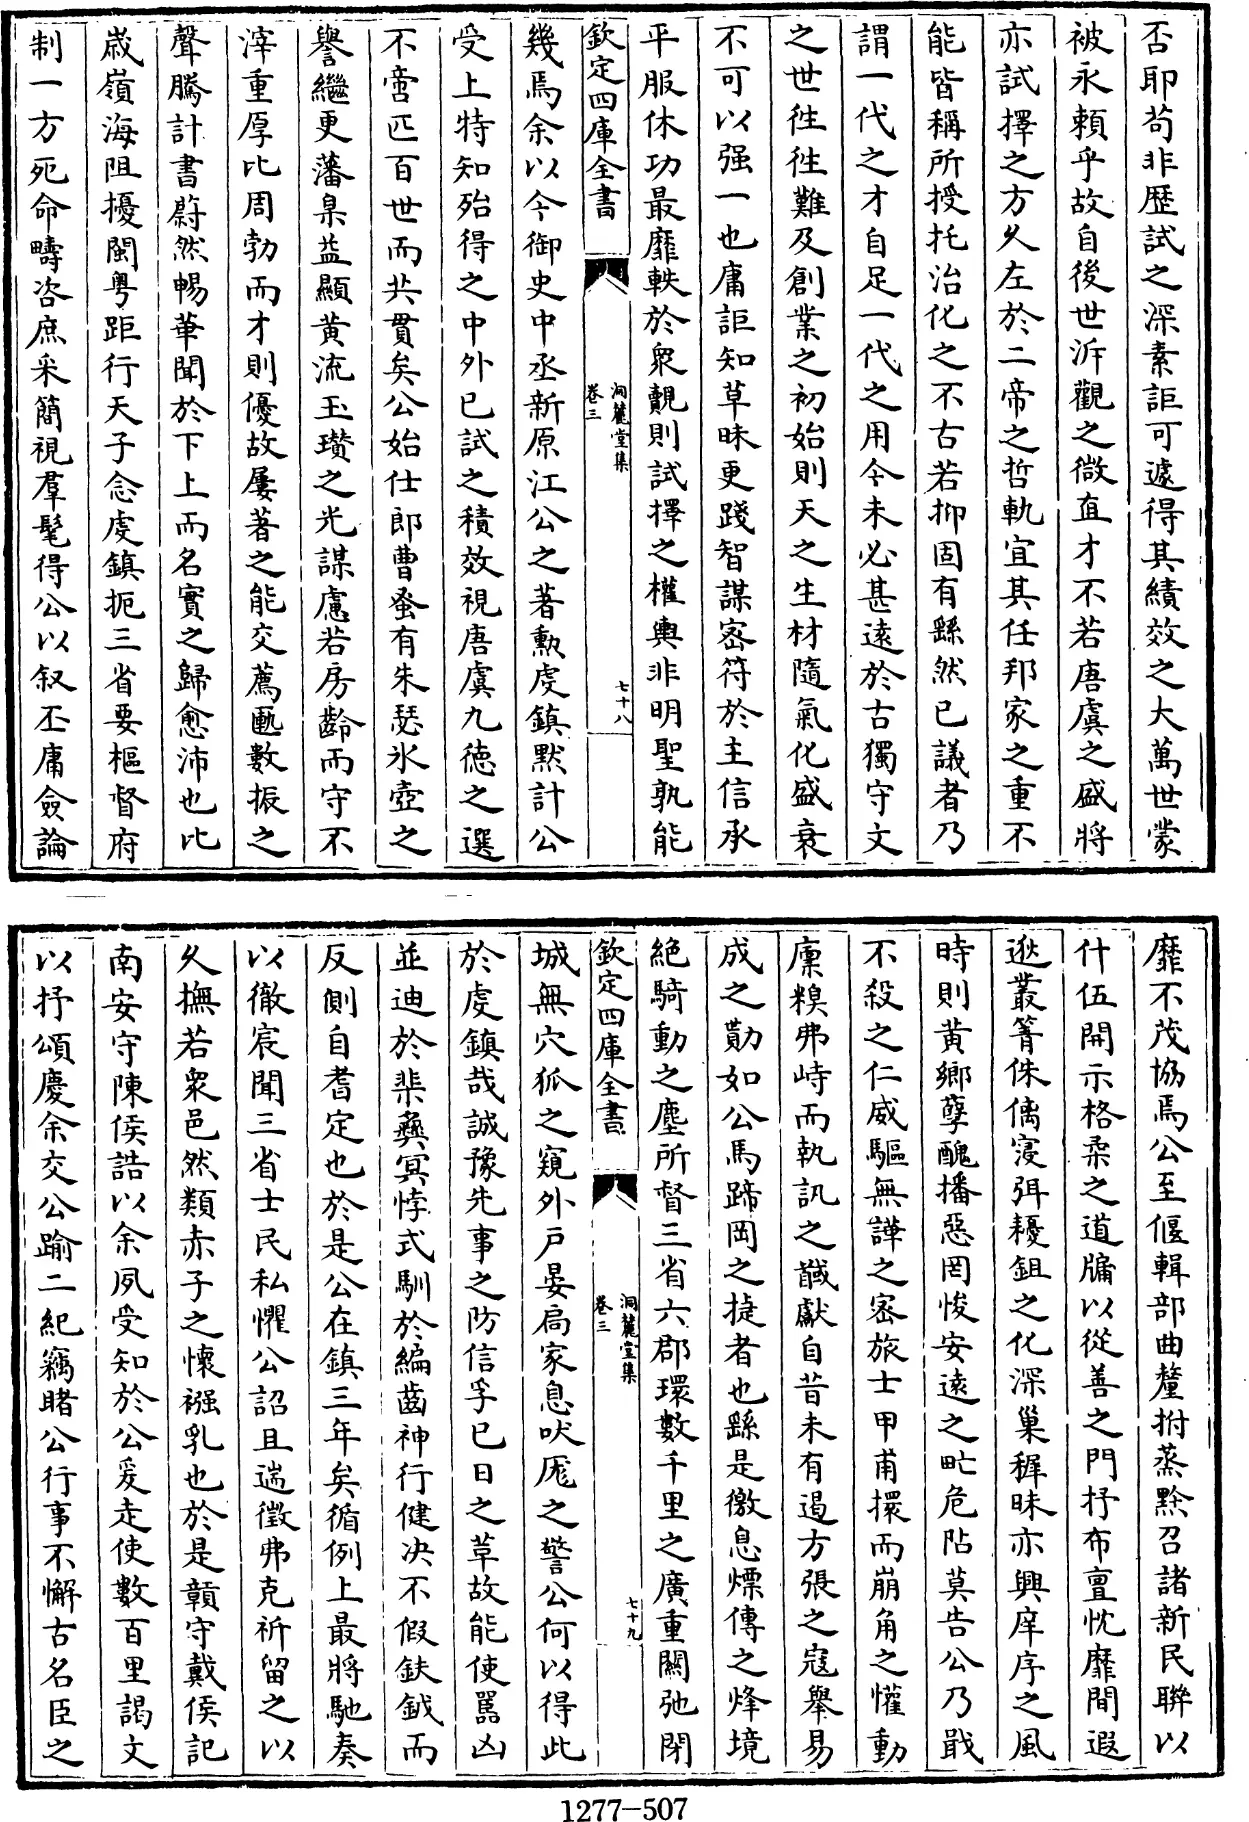 否耶茍非歴試之深素詎可遽得其績效之大萬世蒙
被永賴乎故自後世泝觀之微直才不若唐虞之盛將
亦試擇之方乆左於二帝之哲軌宜其任邦家之重不
能皆稱所授托治化之不古若抑固有繇然已議者乃
謂一代之才自足一代之用今未必甚遠於古獨守文
之世徃徃難及創業之初始則天之生材隨氣化盛衰
不可以强一也庸詎知草昧更踐智謀宻符於主信承
平服休功最靡軼於衆覿則試擇之權輿非明聖孰能
欽定四庫全書
洞麓堂集
卷三
七十八
幾焉余以今御史中丞新原江公之著勲虔鎮黙計公
受上特知殆得之中外已試之積效視唐虞九德之選
不啻匹百世而共貫矣公始仕郎曹蚤有朱瑟氷壺之
譽繼更藩臬益顯黄流玉瓚之光謀慮若房齡而守不
滓重厚比周勃而才則優故屢著之能交薦亟數振之
聲騰計書蔚然暢華聞於下上而名實之歸愈沛也比
歳嶺海阻擾閩粤距行天子念虔鎮扼三省要樞督府
制一方死命疇咨庶采簡視羣髦得公以叙丕庸僉論
靡不茂協焉公至偃輯部曲釐拊蒸黔召諸新民聨以
什伍開示格柔之道牖以從善之門抒布亶忱靡間遐
逖叢箐侏㒧寖弭耰鉏之化深巢穉昧亦興庠序之風
時則黄鄉孽醜播惡罔悛安逺之甿危阽莫告公乃戢
不殺之仁威驅無譁之宻旅士甲甫擐而崩角之懽動
廩糗弗峙而執訊之馘獻自昔未有遏方張之寇舉易
成之勩如公馬蹄岡之捷者也繇是徼息熛傳之烽境
絶騎動之塵所督三省六郡環數千里之廣重闗弛閉
欽定四庫全書
洞麓堂集
卷三
七十九
城無穴狐之窺外戸晏扃家息吠厖之警公何以得此
於虔鎮哉誠豫先事之防信孚已日之革故能使嚚凶
並迪於棐彝冥悖式馴於編齒神行健决不假鈇鉞而
反側自耆定也於是公在鎮三年矣循例上最將馳奏
以徹宸聞三省士民私懼公詔且遄徵弗克祈留之以
乆撫若衆邑然類赤子之懐襁乳也於是贛守戴侯記
南安守陳侯誥以余夙受知於公爰走使數百里謁文
以抒頌慶余交公踰二紀竊睹公行事不懈古名臣之
1277-507